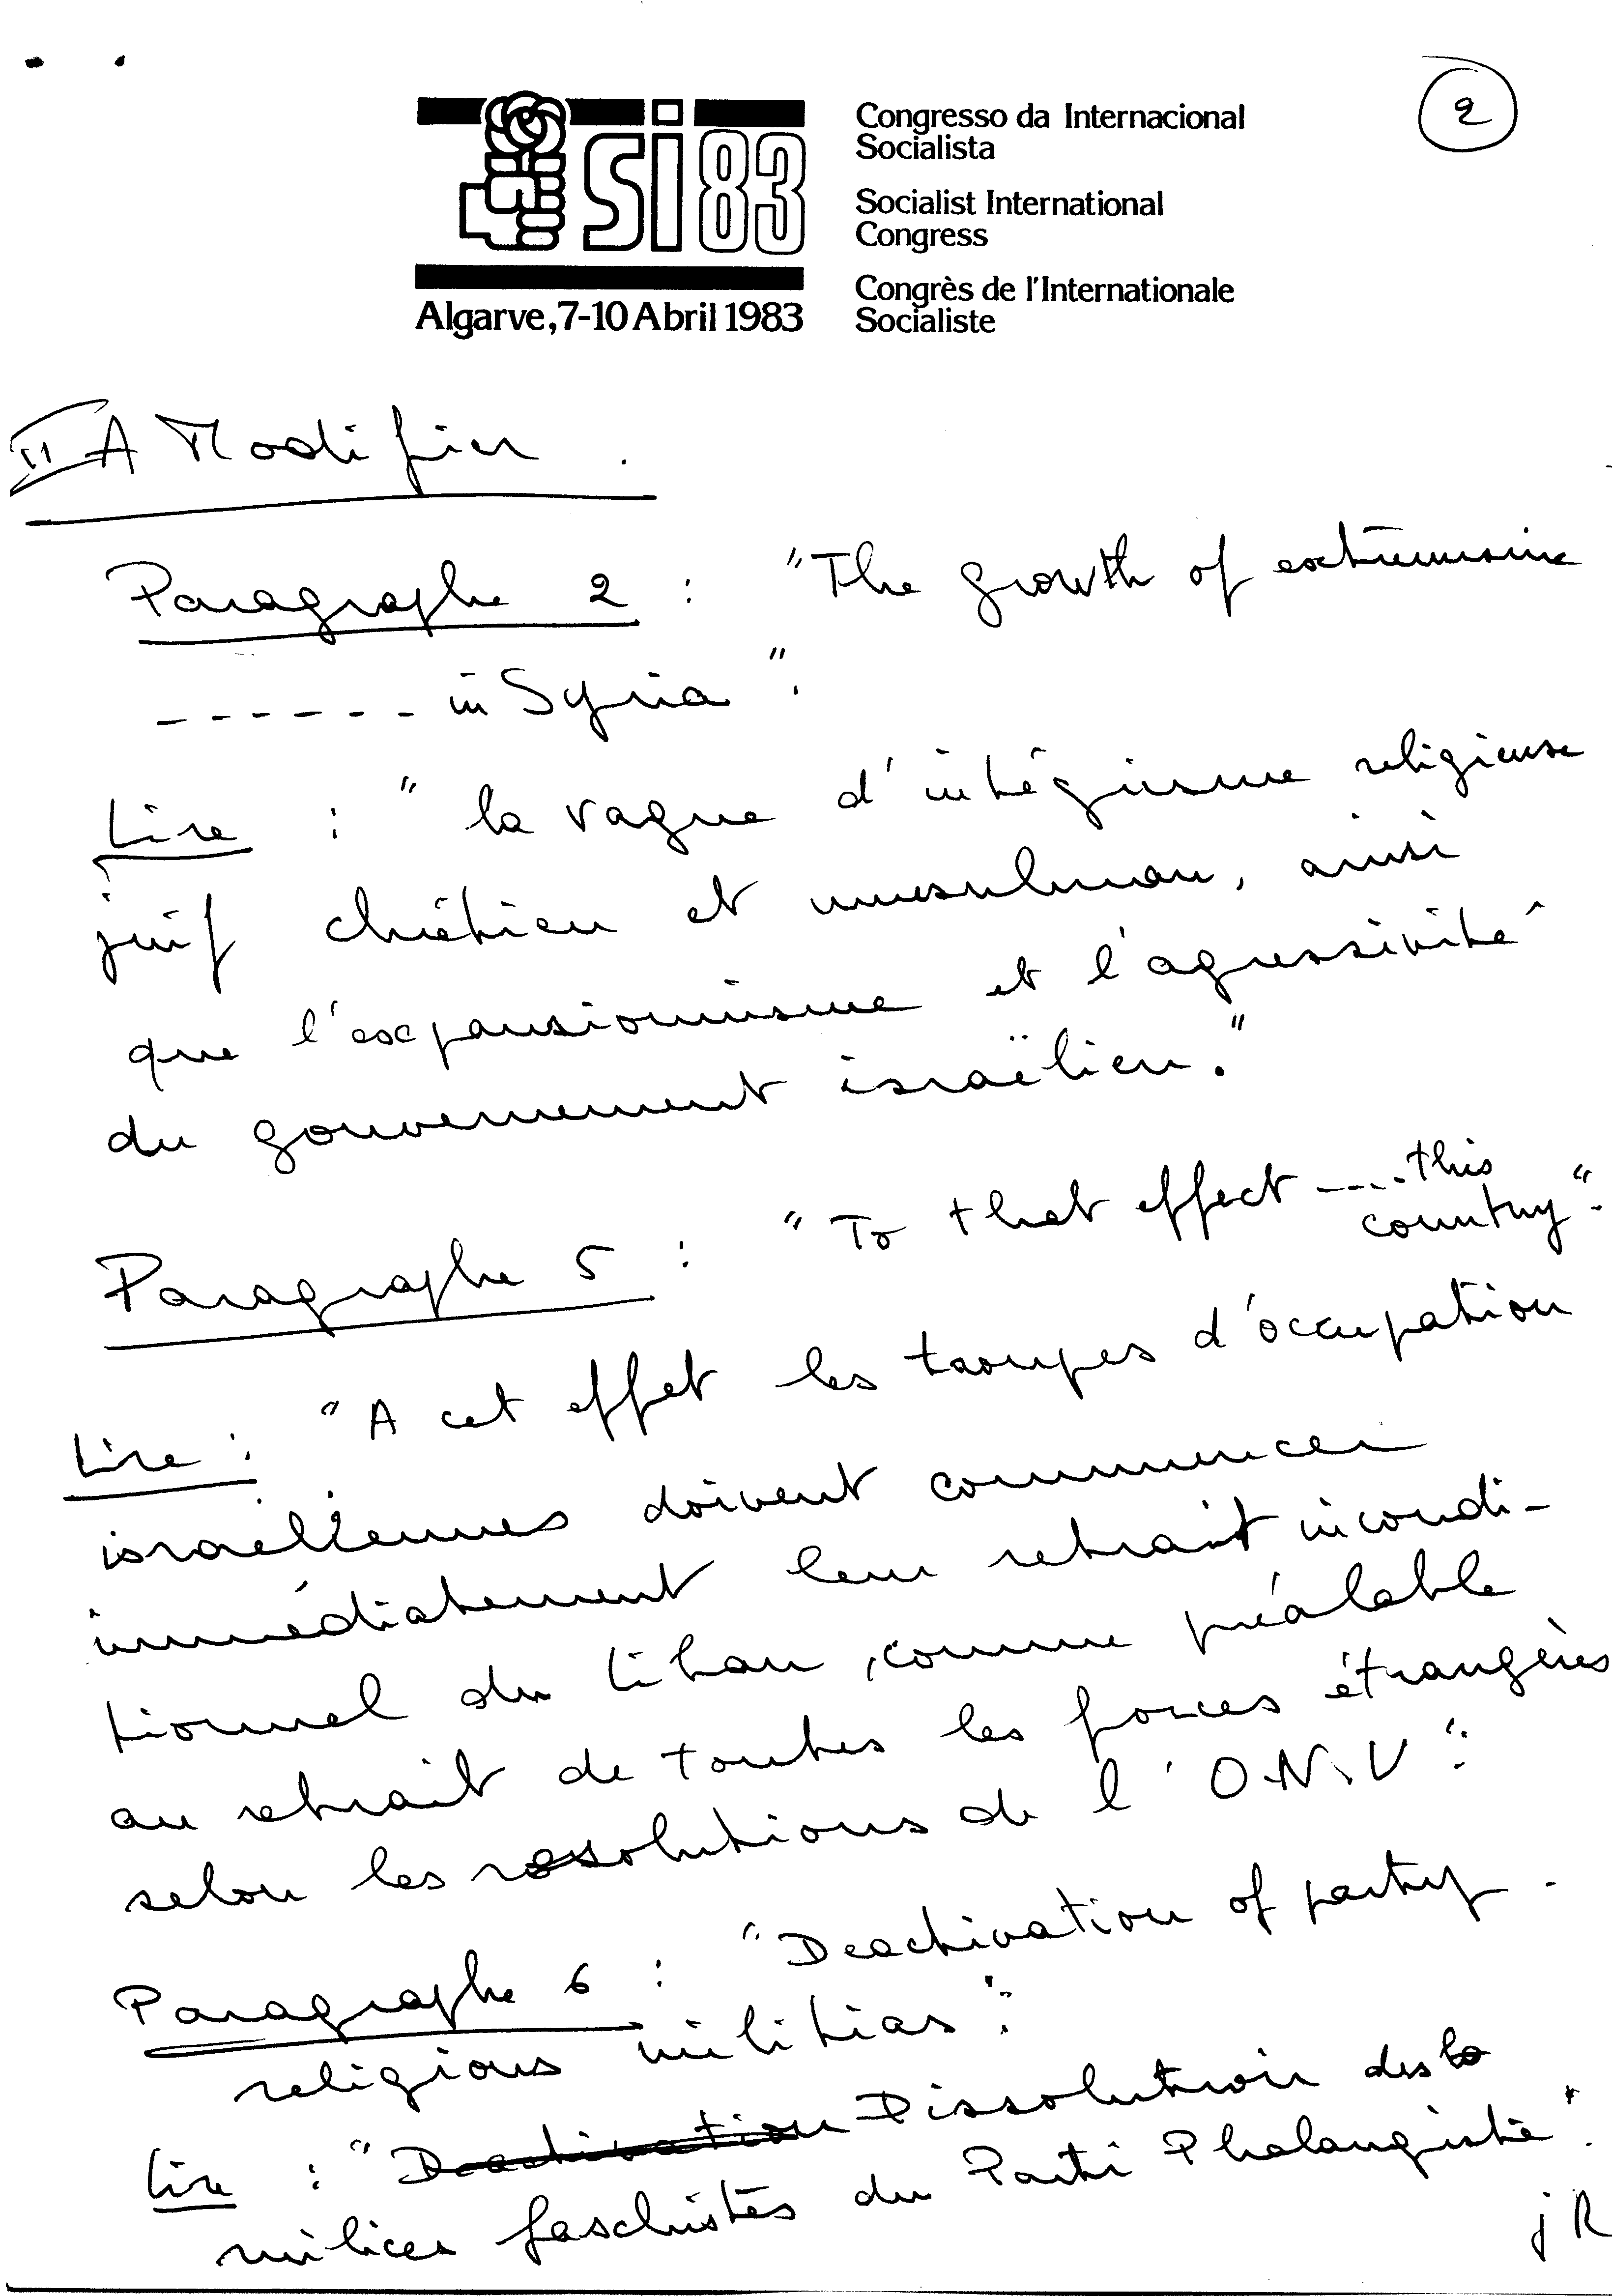 2
si 83
Congresso da Internacional
Socialista
Socialist International
Congress
Congrès de l'Internationale
Socialiste
Algarve, 7-10 Abril 1983
II A Modifier.
Paragraphe 2 : "The growth of extremisme
------ in Syria".
Lire : "la vague d'intégrisme religieuse
juif chrétien et musulman, ainsi
que l'expansionnisme et l'agressivité
du gouvernement israëlien."
Paragraphe 5 : "To that effect ---- this
country".
Lire : "A cet effet les troupes d'occupation
israéliennes doivent commencer
immédiatement leur retrait incondi-
tionnel du Liban, comme préalable
au retrait de toutes les forces étrangères
selon les resolutions de l'O.N.U".
Paragraphe 6 : "Deactivation of party -
religious militias".
Lire : "Deactivation Dissolution des
milices faschistes du Parti Phalangiste".
jR